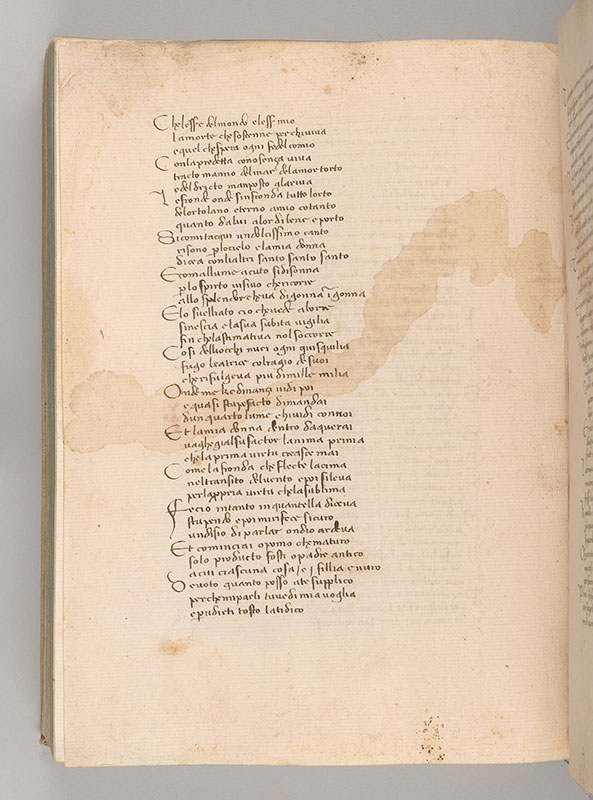 Chelesse delmondo elesse mio
lamorte chesostenne perchiviva
equel chespera ogni fedel comio
Conla predetta conosenza viva
tracto manno delmar delamor torto
edel dricto manposto alariva
Le fronde onde sinfronda tutto lorto
delortolano eterno amio cotanto
quanto dalui alor dibene e porto
Si comi tacqui undolcissimo canto
risono plocielo elamia donna
dicea conlualtri santo santo santo
E comallume acuto sidisonna
plo spirto visivo chericorre
allo splendore cheva di gonna i gonna
E lo suelliato cio chevede aborre
sinescia e lasua subita vigilia
fin chelastimativa nol soccorre
Cosi dellocchi miei ogni quisquilia
fugo beatrice colragio de suoi
cherifulgeva piu dimille milia
Onde me ke dinanzi vidi poi
e quasi stupefacto dimandai
dun quarto lume chividi connoi
Et lamia donna dentro daquerai
vaghegia lsufactor lanima prima
chela prima virtu creasse mai
Come la fronda che flecte lacima
neltransito delvento epoi sileva
perlappria virtu chela sublima
Fecio intanto inquantella diceva
stupendo epoi mirifece sicuro
undisio di parlar ondio ardeva
Et cominciai o pomo che maturo
solo producto fosti o padre antico
acui ciascuna cosa / e j fillia e nuro
Devoto quanto posso ate supplico
perchemiparli tuvedi mia voglia
e pudirti tosto la ti dico